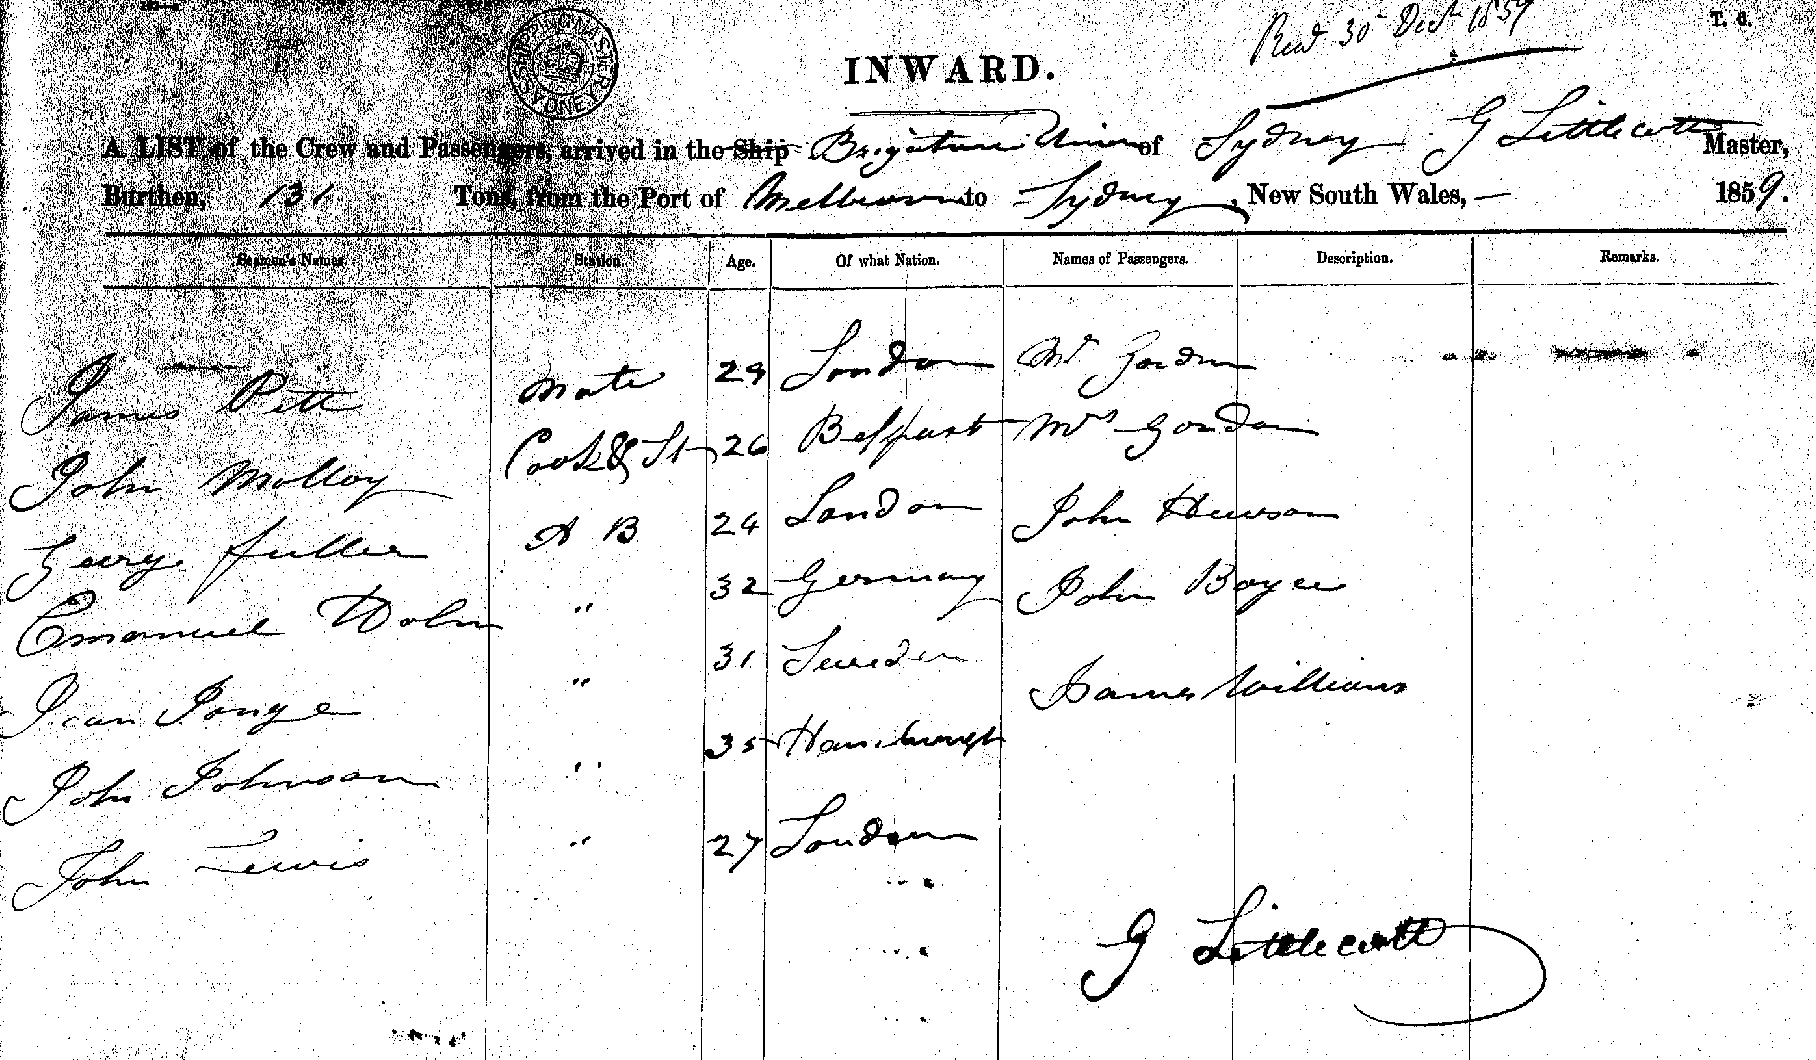 T. G.
Recd 30 Decr 1859
INWARD.
A LIST of the Crew and Passengers, arrived in the Ship Brigantine Union of Sydney G Littlecott Master,
Burthen, 131 Tons, from the Port of Melbourne to Sydney, New South Wales, — 1859.
Seamen's Names. Station. Age. Of what Nation. Names of Passengers. Description. Remarks.
James Pett Mate 29 London Mr Gordon
John Molloy Cook & St 26 Belfast Mrs Gordon
George Fuller A B 24 London John Hewson
Emanuel Holm " 32 Germany John Boyce
Jean " 31 Sweden James Williams
John Johnson " 35 Hamburgh
John Lewis " 27 London
G Littlecott